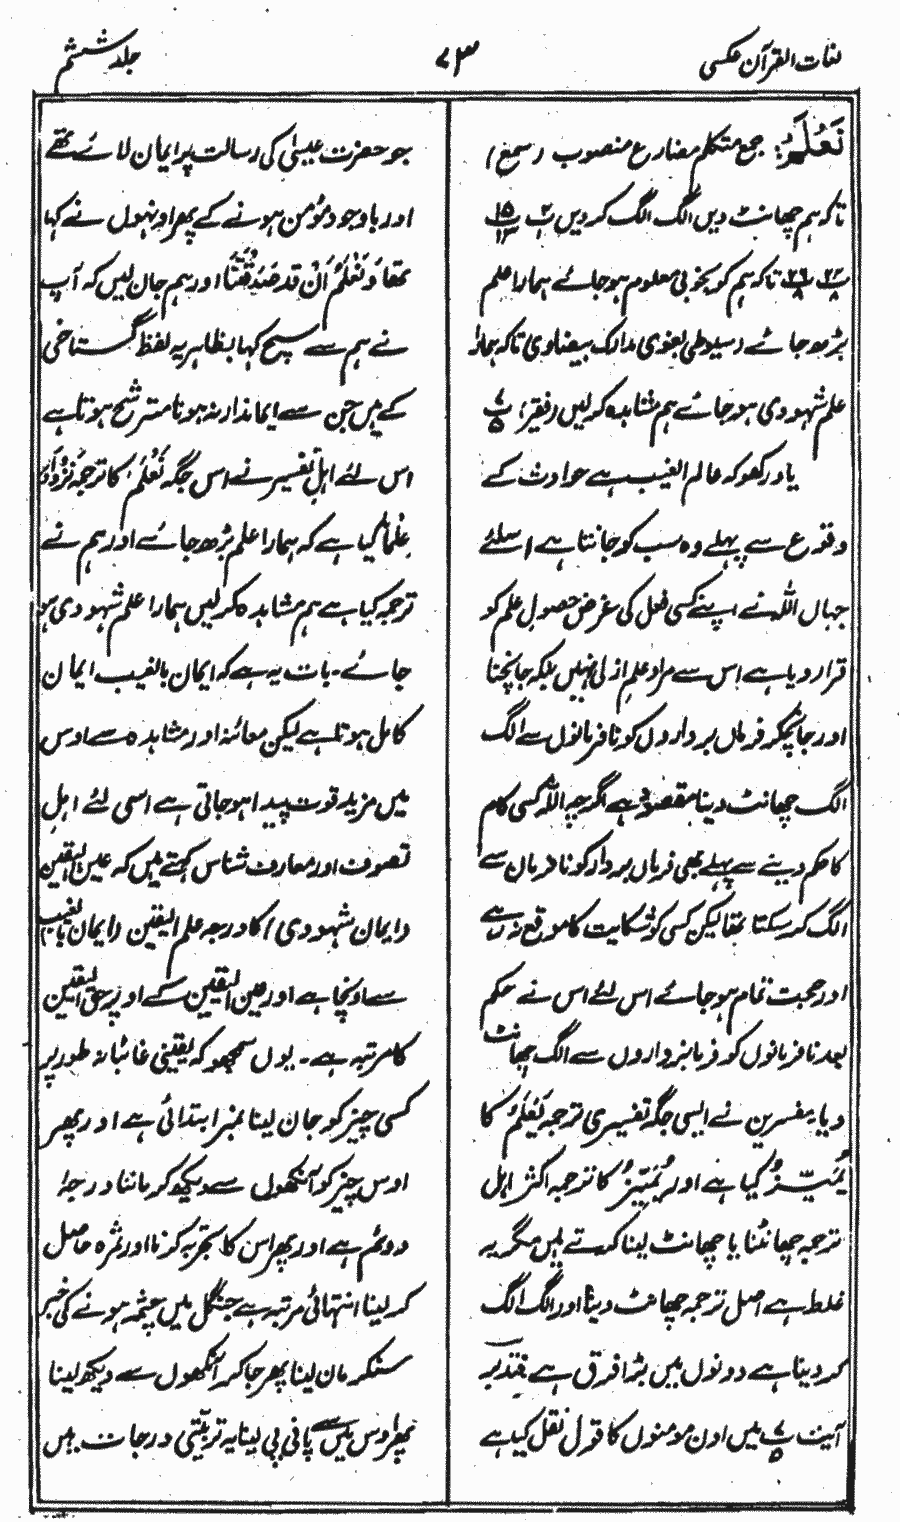 لغات القرآن عکسی
۷۳
جلد ششم
نَعْلَمَ: جمع متکلم مضارع منصوب (سمع)
تاکہ ہم چھانٹ دیں الگ الگ کر دیں پ۲ پ۱۵ ۱۳
پ۲۲ ۸ پ۲۶ ۸ تاکہ ہم کو بخوبی معلوم ہو جائے ہمارا علم
بڑھ جائے (سیوطی بغوی مدارک بیضاوی) تاکہ ہمارا
علم شہودی ہو جائے ہم مشاہدہ کر لیں (فقیر) پ۷ ۵
یاد رکھو کہ عالم الغیب ہے حوادث کے
وقوع سے پہلے وہ سب کو جانتا ہے اسلئے
جہاں اللہ نے اپنے کسی فعل کی غرض حصول علم کو
قرار دیا ہے اس سے مراد علم ازلی نہیں بلکہ جانچنا
اور جانچکر فرماں برداروں کو نافرمانوں سے الگ
الگ چھانٹ دینا مقصود ہے اگرچہ اللہ کسی کام
کا حکم دینے سے پہلے بھی فرماں بردار کو نافرمان سے
الگ کر سکتا تھا لیکن کسی کو شکایت کا موقع نہ رہے
اور حجت تمام ہو جائے اس لئے اس نے حکم
بعد نافرمانوں کو فرمانبرداروں سے الگ چھانٹ
دیا۔ مفسرین نے ایسی جگہ تفسیری ترجمہ نَعْلَمُ کا
یُمَیِّزُ کیا ہے اور نُمَیِّزُ کا ترجمہ اکثر اہل
ترجمہ چھانٹنا یا چھانٹ لینا کرتے ہیں مگر یہ
غلط ہے اصل ترجمہ چھانٹ دینا اور الگ الگ
کر دینا ہے دونوں میں بڑا فرق ہے فتدبر
آیت پ۷ ۵ میں اون مومنوں کا قول نقل کیا ہے
جو حضرت عیسیٰ کی رسالت پر ایمان لائے تھے
اور باوجود مؤمن ہونے کے پھر اونہوں نے کہا
تھا وَنَعْلَمَ اَنْ قَدْ صَدَقْتَنَا اور ہم جان لیں کہ آپ
نے ہم سے سچ کہا بظاہر یہ لفظ گستاخی
کے ہیں جن سے ایماندار نہ ہونا مترشح ہوتا ہے
اس لئے اہل تفسیر نے اس جگہ نَعْلَمَ کا ترجمہ نَزْدَادَ
عِلْمًا کیا ہے کہ ہمارا علم بڑھ جائے اور ہم نے
ترجمہ کیا ہے ہم مشاہدہ کر لیں ہمارا علم شہودی ہو
جائے۔ بات یہ ہے کہ ایمان بالغیب ایمان
کامل ہوتا ہے لیکن معائنہ اور مشاہدہ سے اوس
میں مزید قوت پیدا ہو جاتی ہے اسی لئے اہل
تصوف اور معارف شناس کہتے ہیں کہ عین الیقین
(ایمان شہودی) کا درجہ علم الیقین (ایمان بالغیب)
سے اونچا ہے اور عین الیقین کے اوپر حق الیقین
کا مرتبہ ہے۔ یوں سمجھو کہ یقینی غائبانہ طور پر
کسی چیز کو جان لینا نمبر ابتدائی ہے اور پھر
اوس چیز کو آنکھوں سے دیکھ کر ماننا درجہٴ
دوئم ہے اور پھر اس کا تجربہ کرنا اور ثمرہ حاصل
کر لینا انتہائی مرتبہ ہے جنگل میں چشمہ ہونے کی خبر
سنکر مان لینا پھر جا کر آنکھوں سے دیکھ لینا
پھر اوس میں سے پانی پی لینا یہ ترتیبی درجات ہیں